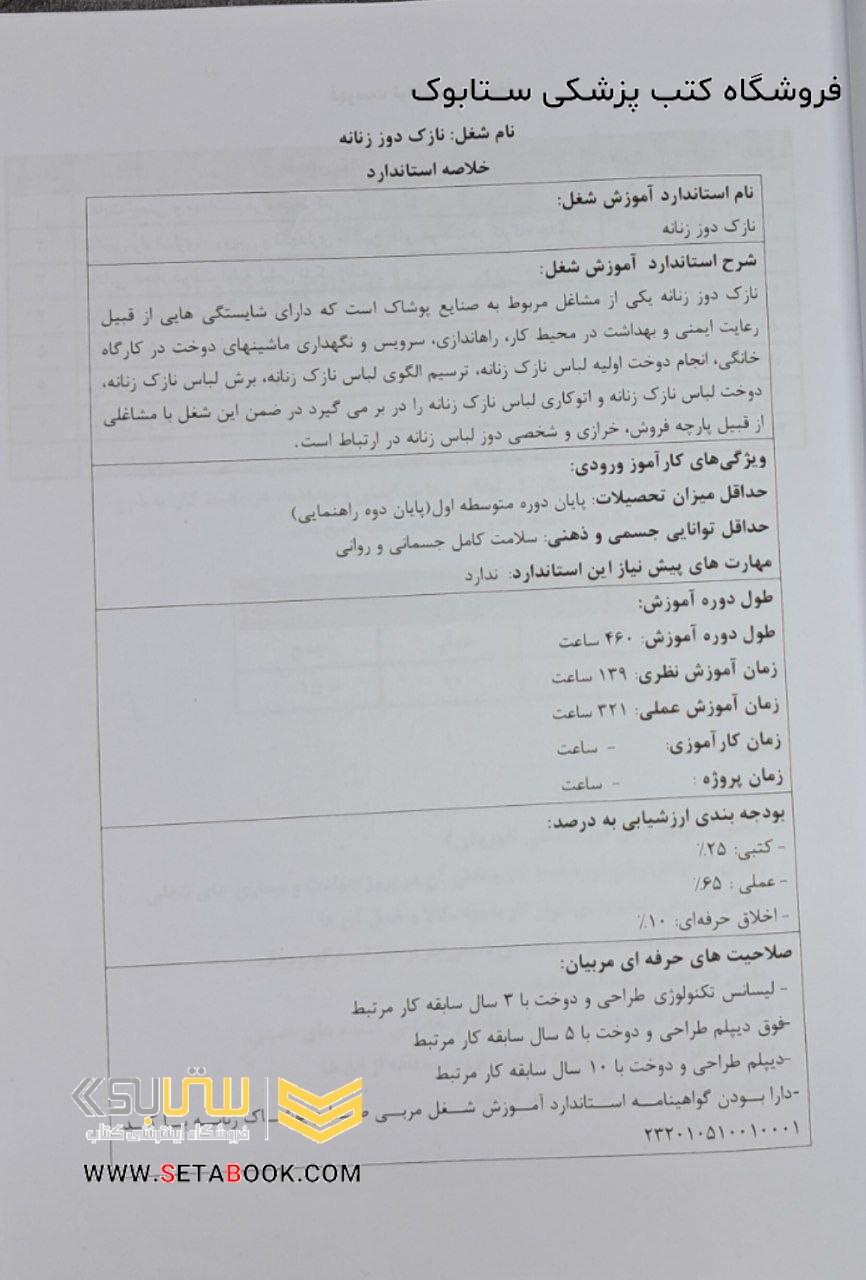 فروشگاه کتب پزشکی ستابوک
نام شغل: نازک دوز زنانه
خلاصه استاندارد
نام استاندارد آموزش شغل:
نازک دوز زنانه
شرح استاندارد آموزش شغل:
نازک دوز زنانه یکی از مشاغل مربوط به صنایع پوشاک است که دارای شایستگی هایی از قبیل
رعایت ایمنی و بهداشت در محیط کار، راهاندازی، سرویس و نگهداری ماشینهای دوخت در کارگاه
خانگی، انجام دوخت اولیه لباس نازک زنانه، ترسیم الگوی لباس نازک زنانه، برش لباس نازک زنانه،
دوخت لباس نازک زنانه و اتوکاری لباس نازک زنانه را در بر می گیرد در ضمن این شغل با مشاغلی
از قبیل پارچه فروش، خرازی و شخصی دوز لباس زنانه در ارتباط است.
ویژگی‌های کارآموز ورودی:
حداقل میزان تحصیلات: پایان دوره متوسطه اول(پایان دوه راهنمایی)
حداقل توانایی جسمی و ذهنی: سلامت کامل جسمانی و روانی
مهارت های پیش نیاز این استاندارد: ندارد
طول دوره آموزش:
طول دوره آموزش: ۴۶۰ ساعت
زمان آموزش نظری: ۱۳۹ ساعت
زمان آموزش عملی: ۳۲۱ ساعت
زمان کارآموزی: - ساعت
زمان پروژه : - ساعت
بودجه بندی ارزشیابی به درصد:
- کتبی: ۲۵٪
- عملی : ۶۵٪
- اخلاق حرفه‌ای: ۱۰٪
صلاحیت های حرفه ای مربیان:
- لیسانس تکنولوژی طراحی و دوخت با ۳ سال سابقه کار مرتبط
-فوق دیپلم طراحی و دوخت با ۵ سال سابقه کار مرتبط
-دیپلم طراحی و دوخت با ۱۰ سال سابقه کار مرتبط
-دارا بودن گواهینامه استاندارد آموزش شغل مربی
۲۳۲۰۱۰۵۱۰۰۱۰۰۰۱
ستابوک
فروشگاه اینترنتی کتاب
WWW.SETABOOK.COM